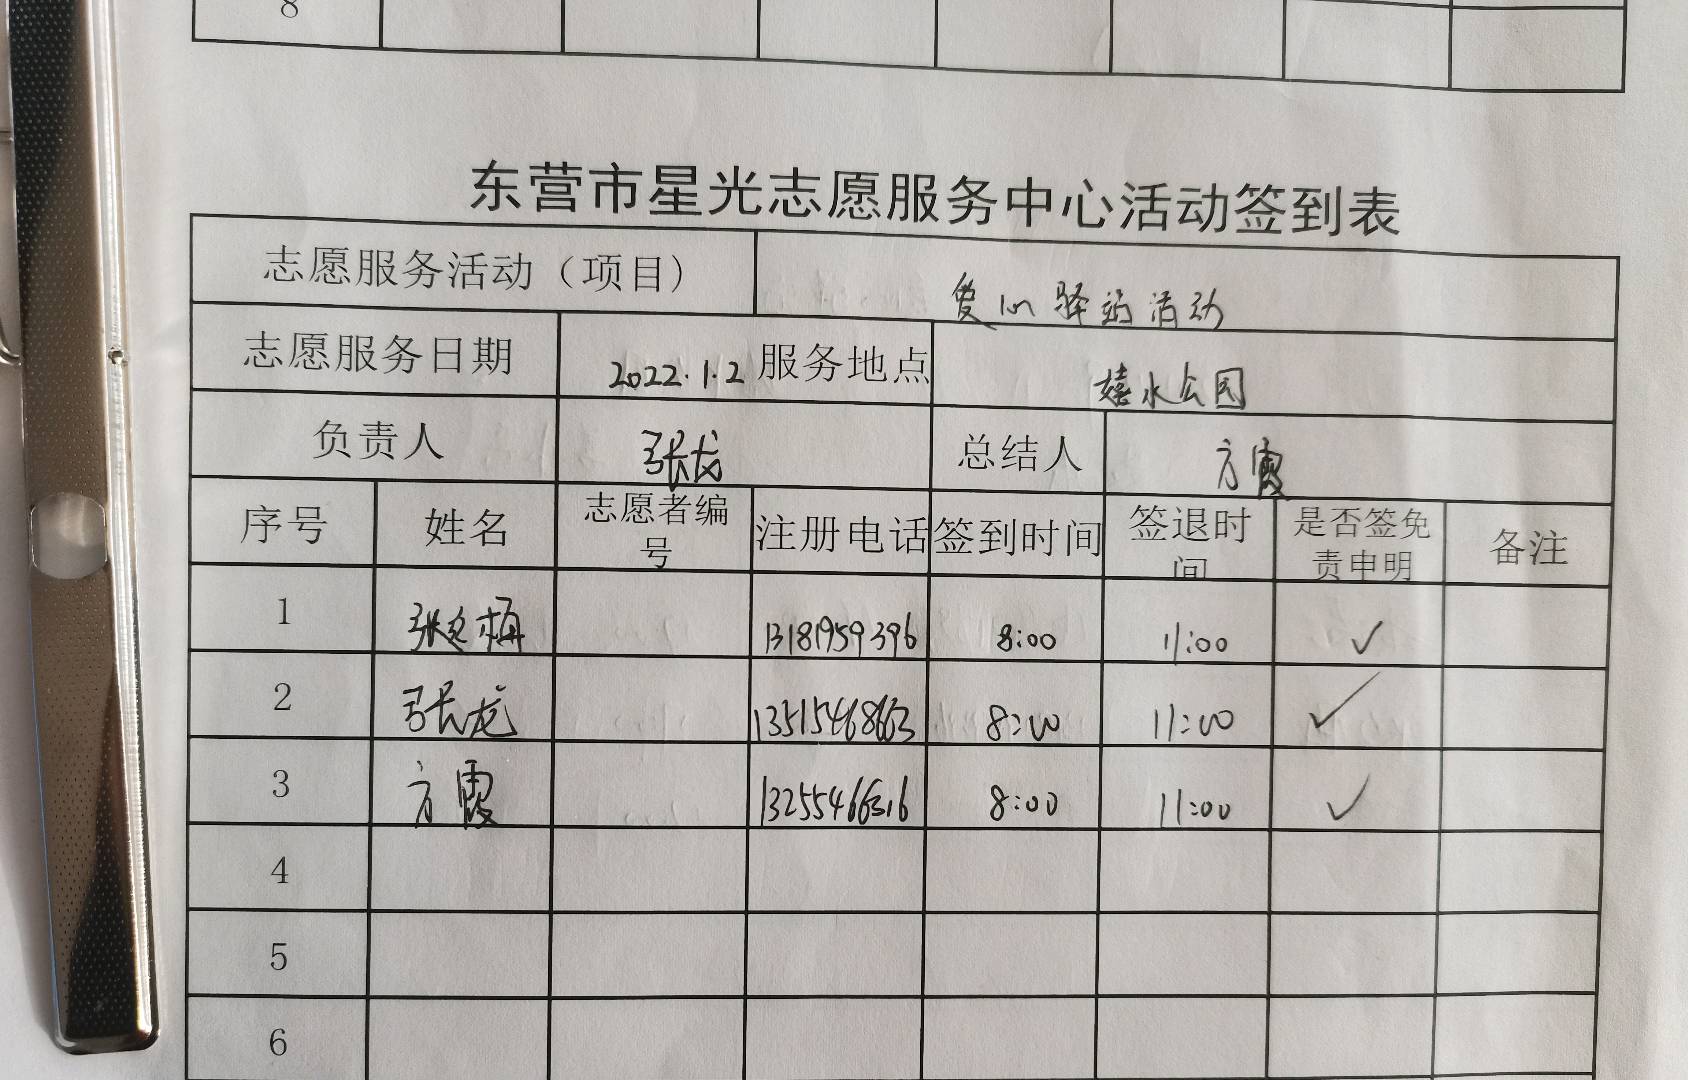 8
东营市星光志愿服务中心活动签到表
志愿服务活动（项目） 爱心驿站活动
志愿服务日期 2022.1.2 服务地点 嬉水公园
负责人 张龙 总结人 方霞
序号 姓名 志愿者编号 注册电话 签到时间 签退时间 是否签免责申明 备注
1 13181959396 8:00 11:00 ✓
2 张龙 13515468663 8:00 11:00 ✓
3 方霞 13255466316 8:00 11:00 ✓
4
5
6